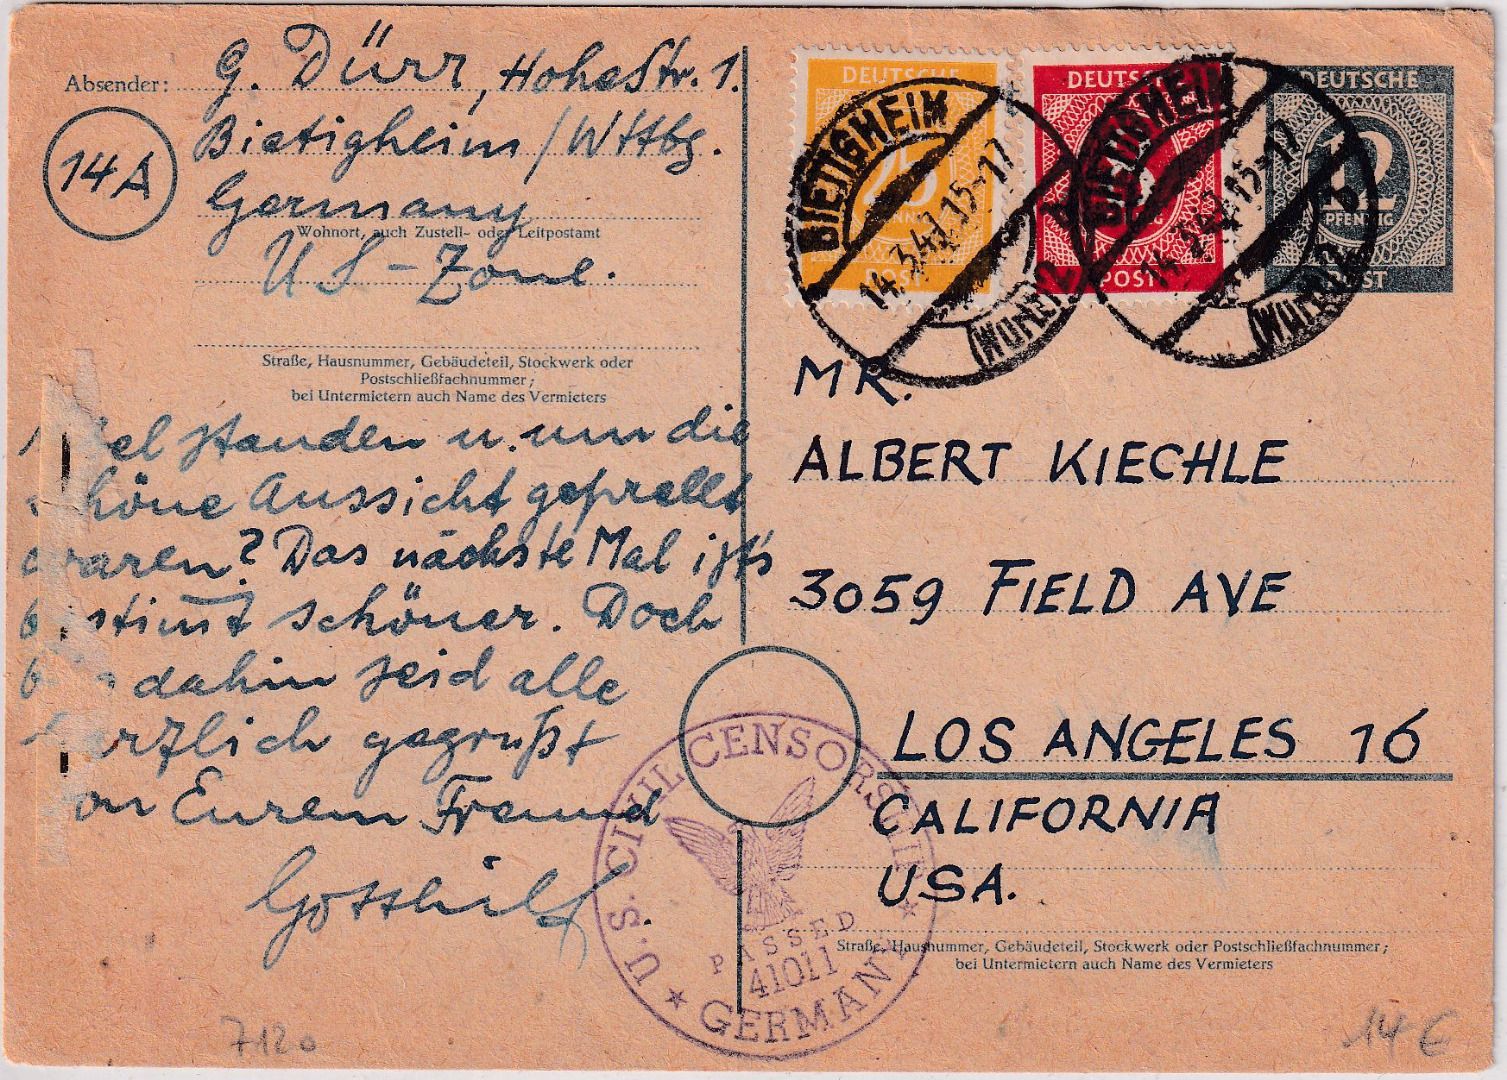 Absender: G. Dürr, Hohestr. 1.
14A
Bietigheim/Wttbg.
Germany
Wohnort, auch Zustell- oder Leitpostamt
US-Zone.
Straße, Hausnummer, Gebäudeteil, Stockwerk oder
Postschließfachnummer;
bei Untermietern auch Name des Vermieters
standen u. um die
schöne Aussicht geprellt
waren? Das nächste Mal ist's
bestimt schöner. Doch
bis dahin seid alle
herzlich gegrüßt
von Eurem Freund
Gotthilf.
DEUTSCHE
25
PFENNIG
POST
DEUTSCHE
POST
DEUTSCHE
12
PFENNIG
POST
BIETIGHEIM
14.3.47.15-17
(WÜRTT)
BIETIGHEIM
14.3.47.15-17
b
(WÜRTT)
MR.
ALBERT KIECHLE
3059 FIELD AVE
LOS ANGELES 16
CALIFORNIA
USA.
Straße, Hausnummer, Gebäudeteil, Stockwerk oder Postschließfachnummer;
bei Untermietern auch Name des Vermieters
U.S. CIVIL CENSORSHIP
PASSED
41011
GERMANY
7120
14 €